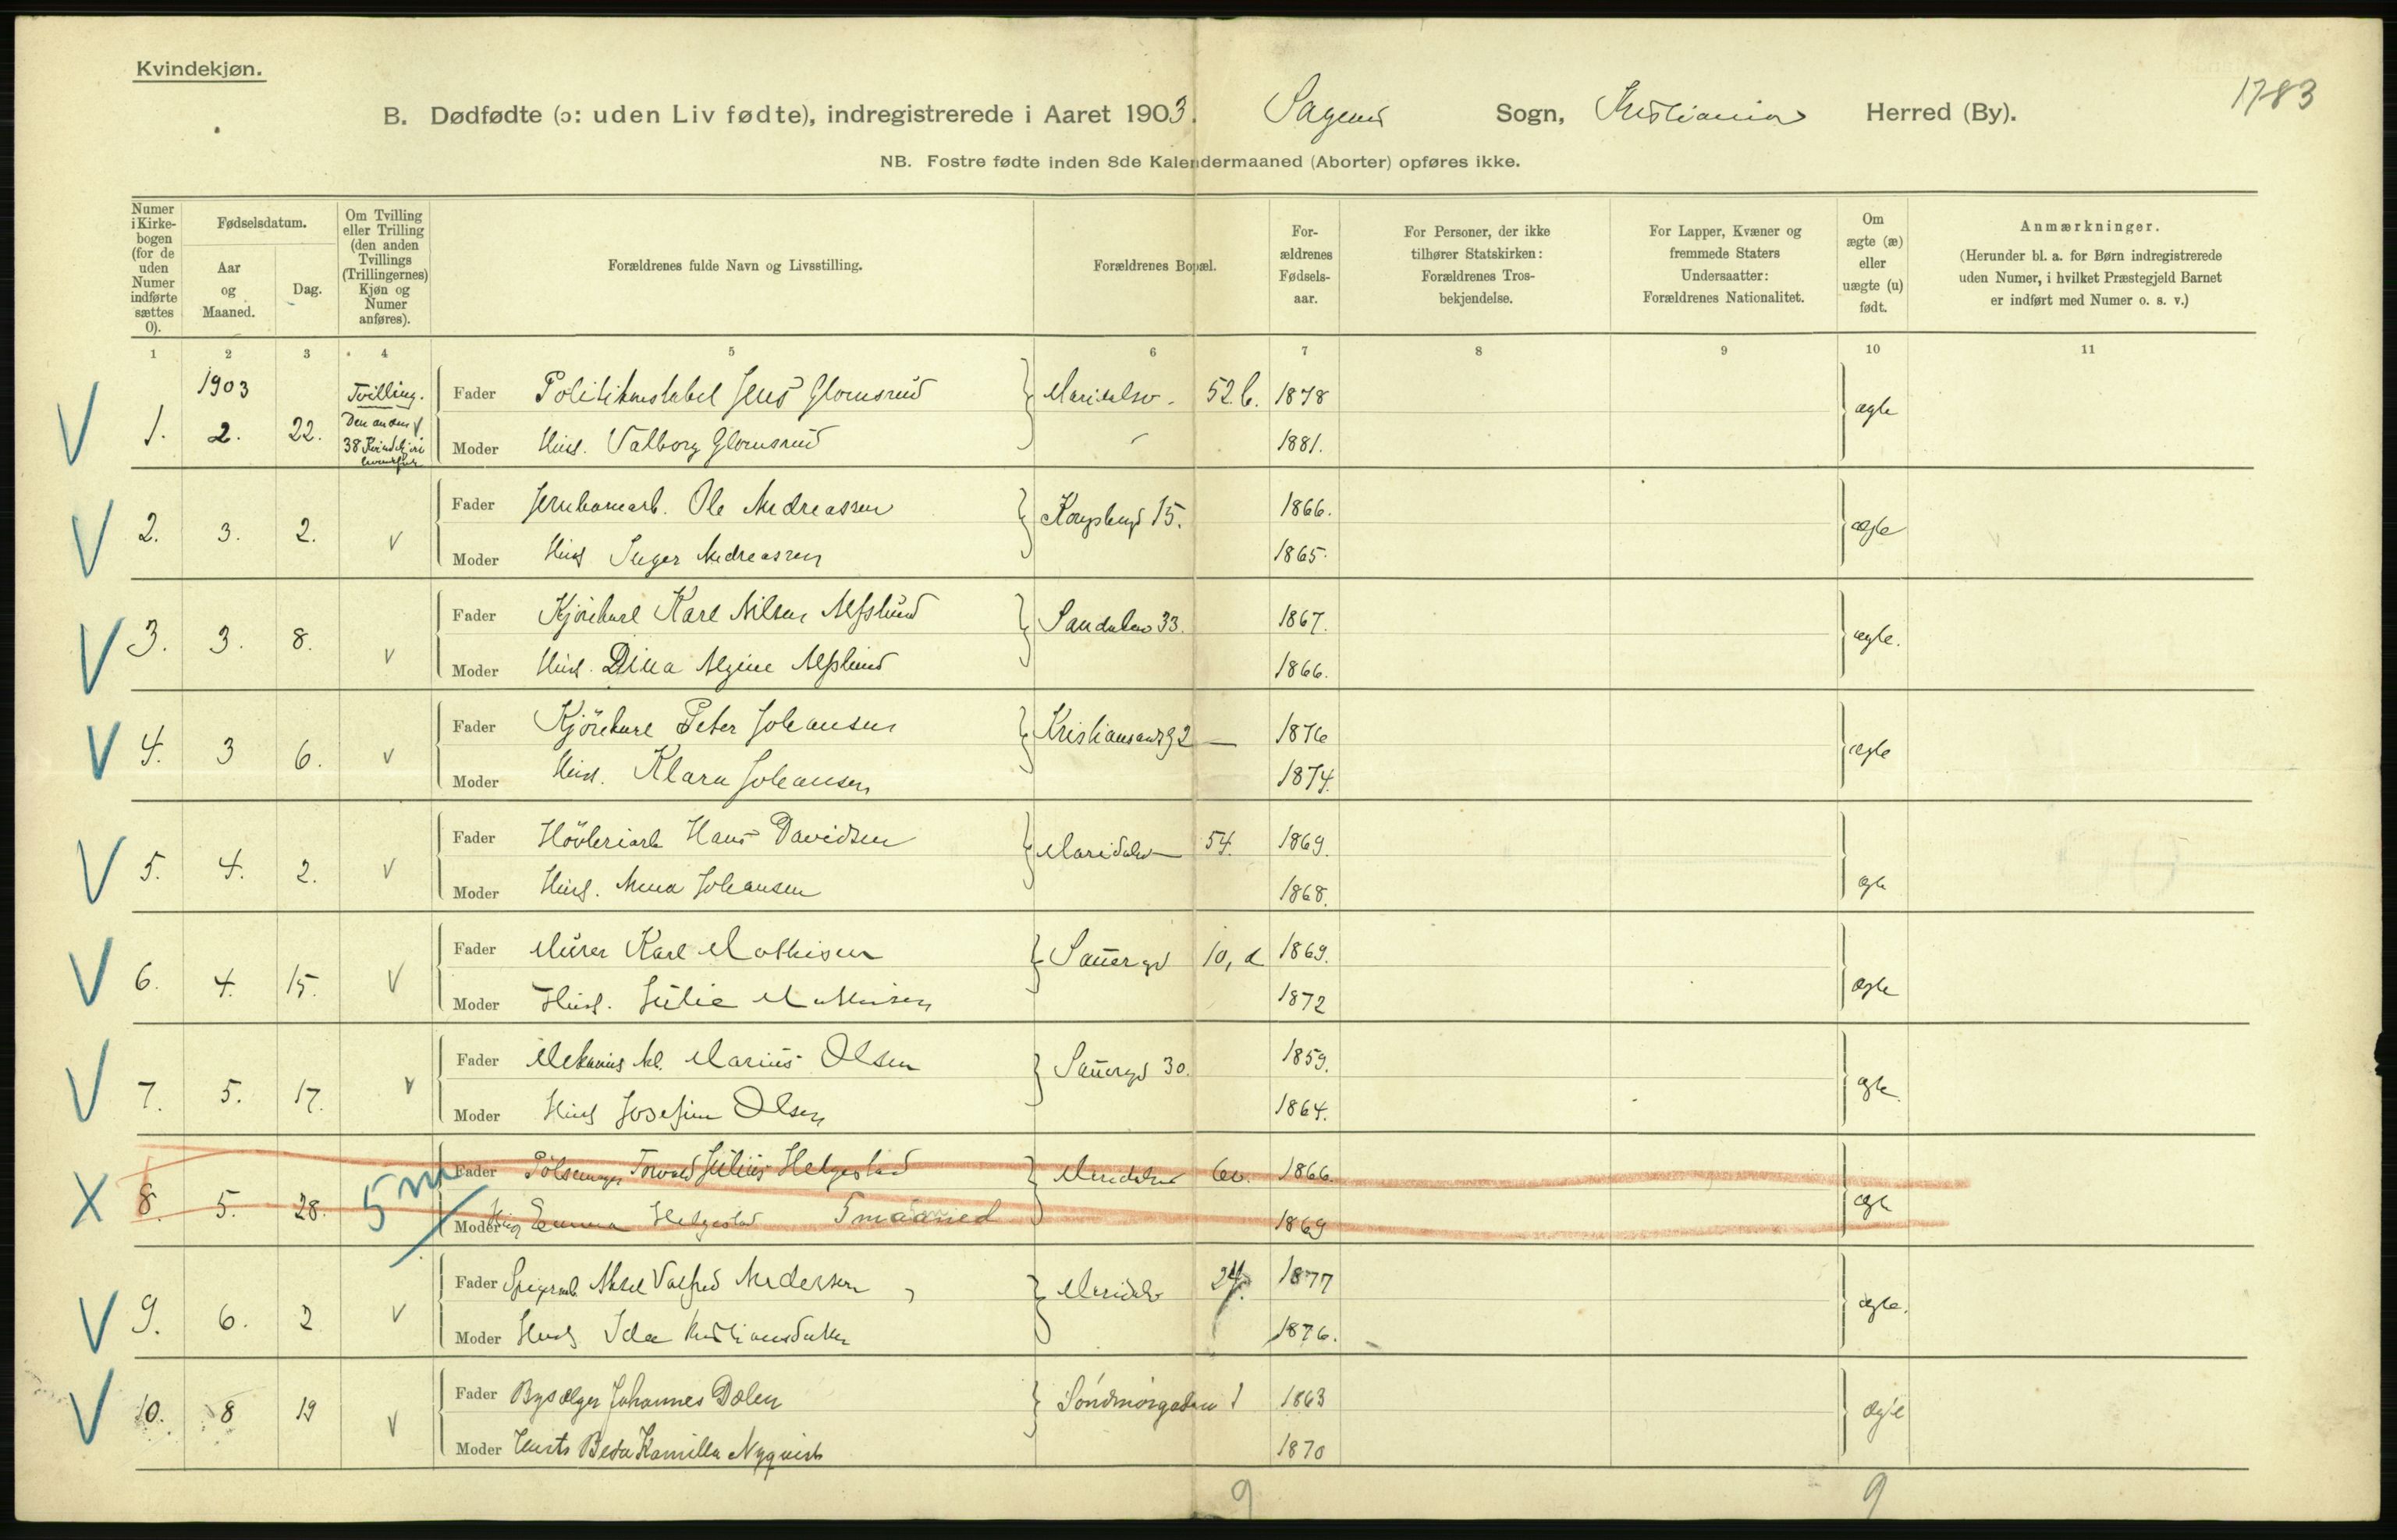 Kvindekjøn.
1783
B. Dødfødte (ɔ: uden Liv fødte), indregistrerede i Aaret 1903. Sagenes Sogn, Kristiania Herred (By).
NB. Fostre fødte inden 8de Kalendermaaned (Aborter) opføres ikke.
Numer i Kirke-bogen (for de uden Numer indførte sættes 0).
Fødselsdatum.
Aar og Maaned.
Dag.
Om Tvilling eller Trilling (den anden Tvillings (Trillingernes) Kjøn og Numer anføres).
Forældrenes fulde Navn og Livsstilling.
Forældrenes Bopæl.
For-ældrenes Fødsels-aar.
For Personer, der ikke tilhører Statskirken: Forældrenes Tros-bekjendelse.
For Lapper, Kvæner og fremmede Staters Undersaatter: Forældrenes Nationalitet.
Om ægte (æ) eller uægte (u) født.
Anmærkninger.
(Herunder bl. a. for Børn indregistrerede uden Numer, i hvilket Præstegjeld Barnet er indført med Numer o. s. v.)
1 2 3 4 5 6 7 8 9 10 11
1903 Tvilling. Fader Politikonstabel Jens Glomsrud 52 b. 1878 ægte
V 1. 2. 22. Den anden 38 Moder Hust. Valborg Glomsrud 1881.
V 2. 3. 2. V Fader Ole Andreassen 15. 1866. ægte
Moder Hust Inger Andreassen 1865.
V 3. 3. 8. V Fader Kjørekarl Karl Nilsen 33. 1867. ægte.
Moder Hust. Dina 1866.
V 4. 3 6. V Fader Kjørekarl Peter Johansen Kristiansandsg 2 — 1876 ægte
Moder Hust. Klara Johansen 1874.
V 5. 4. 2. V Fader Høvleriarb Hans Davidsen Maridalsv 54. 1869. ægte
Moder Hust. Anna Johansen 1868.
V 6. 4. 15. V Fader Murer Karl Mathisen 10, d 1869. ægte
Moder Hust. Julie Mathisen 1872
V 7. 5. 17. V Fader Marius Olsen 30. 1859. ægte
Moder Hust Josefine Olsen 1864.
X 8. 5. 28. 5 m Fader Pølsemager Torvald Julius Helgestad Maridalsv 1866. ægte
Moder Hust Emma Helgestad 5 maaned 1869
V 9. 6. 2 V Fader Aksel Valfred Andersen Maridalsv 24. 1877 ægte.
Moder Hust Ida Kristiansdatter 1876.
V 10. 8 19 V Fader Johannes Dalen Søndmørgaden 1 1863 ægte
Moder Hustr Beda Kamilla Nyquist 1870
9 9